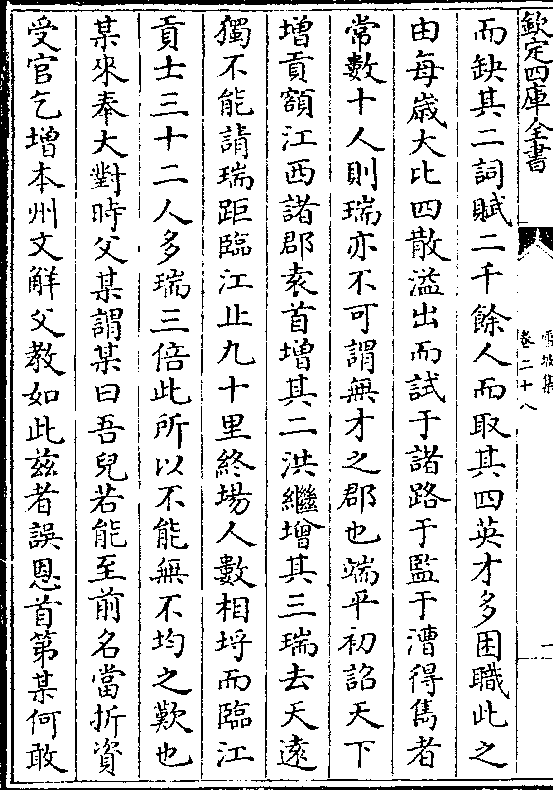 欽定四庫全書
雪坡集
卷二十八
而缺其二詞賦二千餘人而取其四英才多困職此之
由每歲大比四散溢出而試于諸路于監于漕得雋者
常數十人則瑞亦不可謂無才之郡也端平初詔天下
增貢額江西諸郡袁首增其二洪繼增其三瑞去天遠
獨不能請瑞距臨江止九十里終場人數相埒而臨江
貢士三十二人多瑞三倍此所以不能無不均之歎也
某來奉大對時父某謂某曰吾兒若能至前名當折資
受官乞增本州文解父教如此茲者誤恩首第某何敢